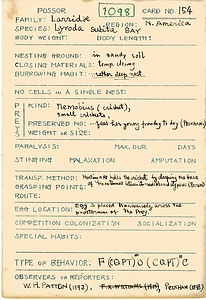 POSSOR
1098
CARD NO. 154
FAMILY: Larridae
REGION: N. America
SPECIES: Lyroda subita SAY
BODY WEIGHT: BODY LENGTH:
NESTING GROUND: in sandy soil
CLOSING MATERIALS: temp. closing
BURROWING HABIT: rather deep nest
NO. CELLS IN A SINGLE NEST:
PREYS
KIND: Nemobius (cricket),
small crickets,
PRESERVED NO.:
WEIGHT OR SIZE:
PARALYSIS: MAX. DUR DAYS
STINGING MALAXATION AMPUTATION
TRANSP. METHOD:
GRASPING POINTS:
ROUTE:
EGG LOCATION: Egg is placed transversely across the
prosternum of the prey.
COMPETITION COLONIZATION SOCIALIZATION
SPECIAL HABITS:
TYPE OF BEHAVIOR:
OBSERVERS OR REPORTERS:
W. H. PATTON (1892),